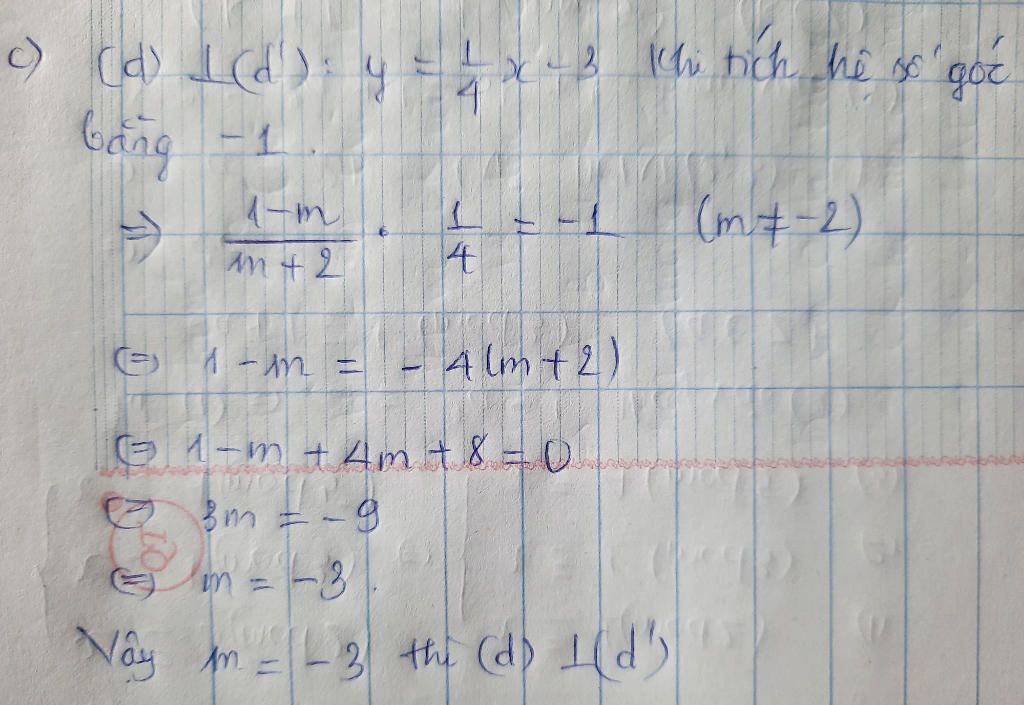 c) (d) ⊥ (d'): y = 1/4 x - 3 khi tích hệ số góc
bằng -1.
=> (1-m)/(m+2) . 1/4 = -1 (m ≠ -2)
<=> 1 - m = - 4(m+2)
<=> 1 - m + 4m + 8 = 0
<=> 3m = -9
<=> m = -3.
Vậy m = -3 thì (d) ⊥ (d')